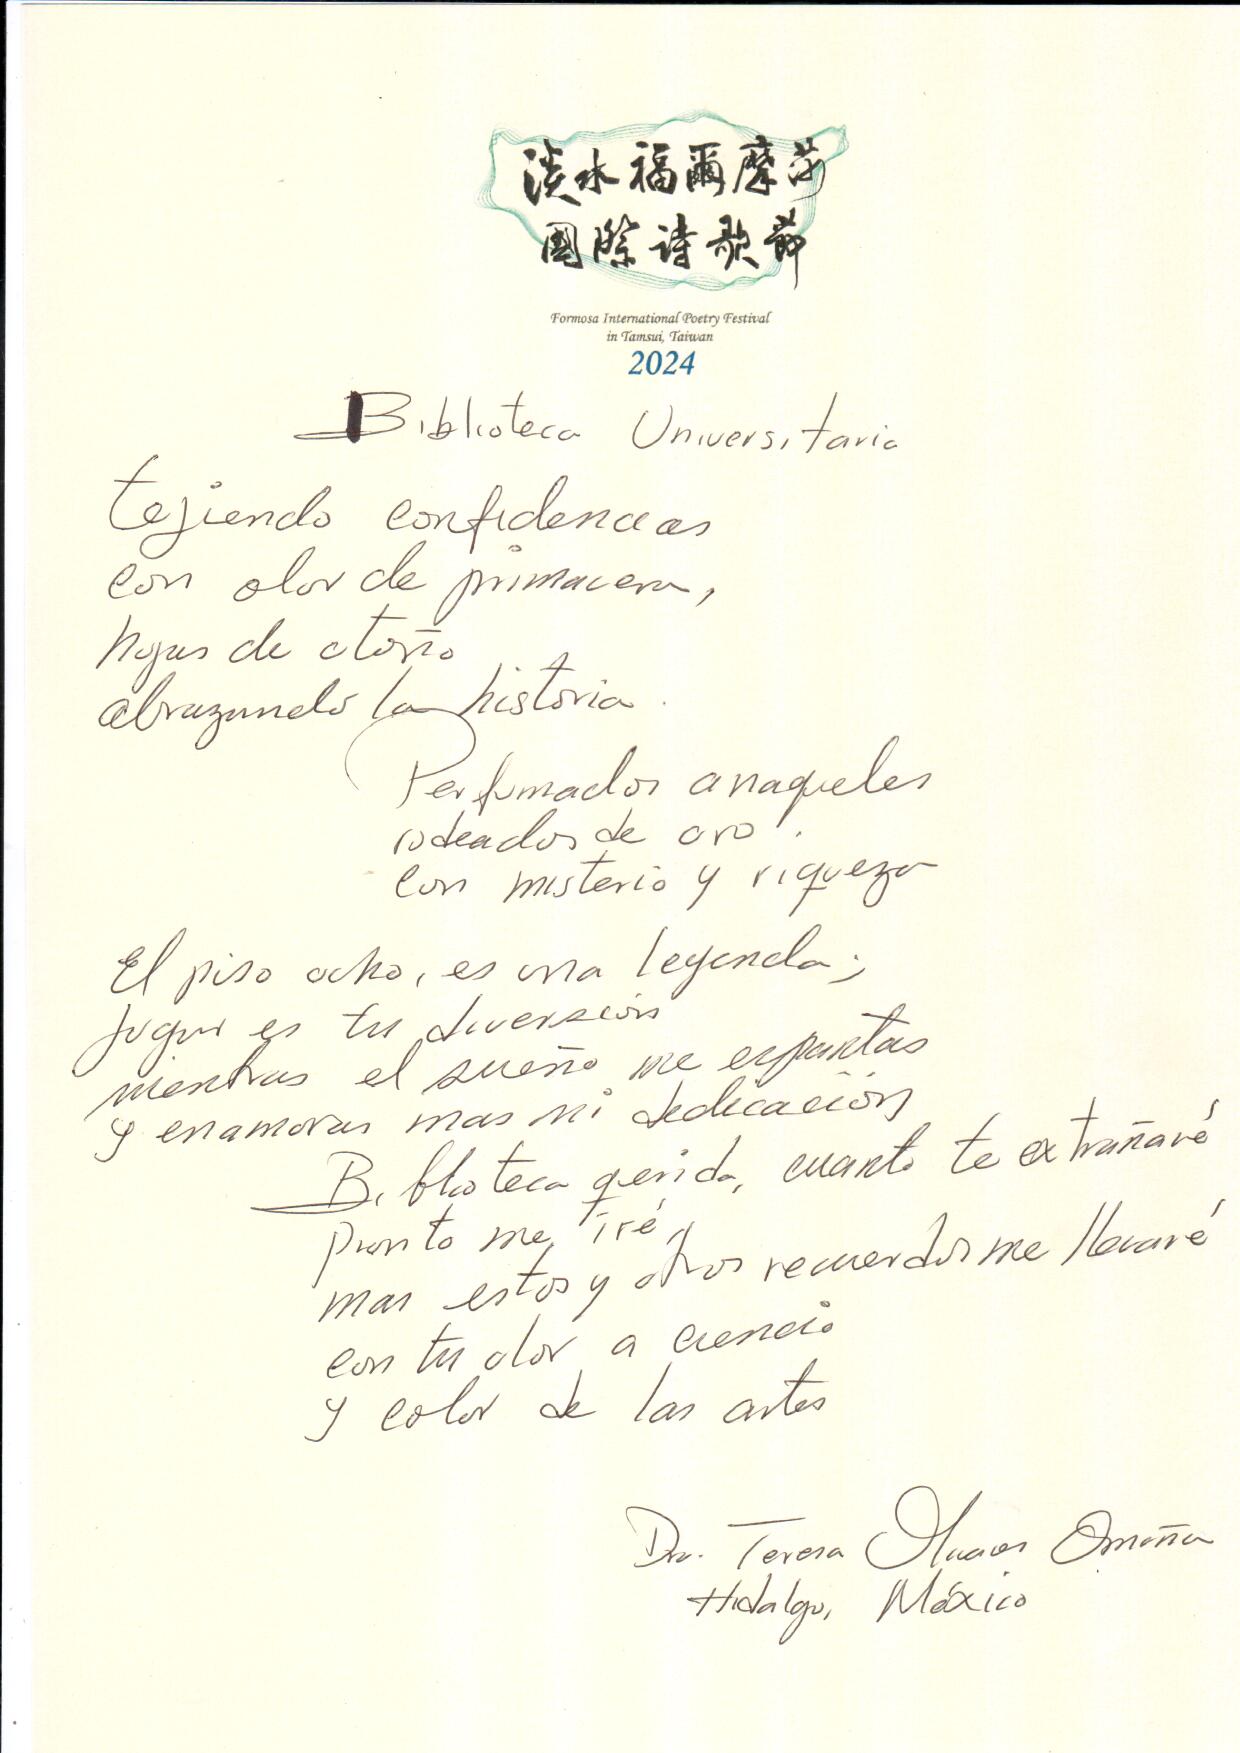 淡水福爾摩莎
國際詩歌節
Formosa International Poetry Festival
in Tamsui, Taiwan
2024
Biblioteca Universitaria
tejiendo confidencias
con olor de primavera,
hojas de otoño
abrazando la historia.
Perfumados anaqueles
rodeados de oro.
con misterio y riqueza
El piso ocho, es una leyenda;
jugar es tu diversión
mientras el sueño me espantas
y enamoras mas mi dedicación
Biblioteca querida, cuanto te extrañaré
pronto me iré,
mas estos y otros recuerdos me llevaré
con tu olor a ciencia
y color de las artes
Dra. Teresa Omaña
Hidalgo, México